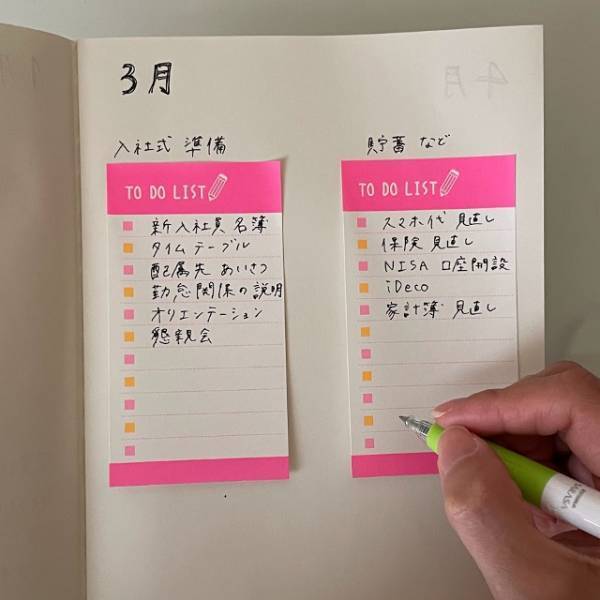 3月
入社式 準備
TO DO LIST
新入社員 名簿
タイムテーブル
配属先 あいさつ
勤怠関係の説明
オリエンテーション
懇親会
貯蓄 など
TO DO LIST
スマホ代 見直し
保険 見直し
NISA 口座開設
iDeco
家計簿 見直し
4月